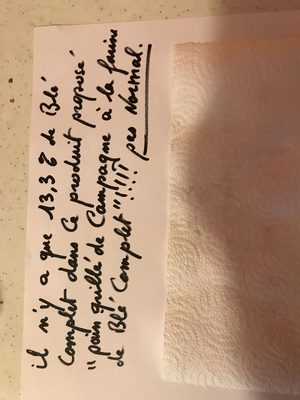 il n'y a que 13,3 % de Blé
Complet dans ce produit proposé
"pain grillé de Campagne à la farine
de Blé Complet"!!!!! pas Normal.